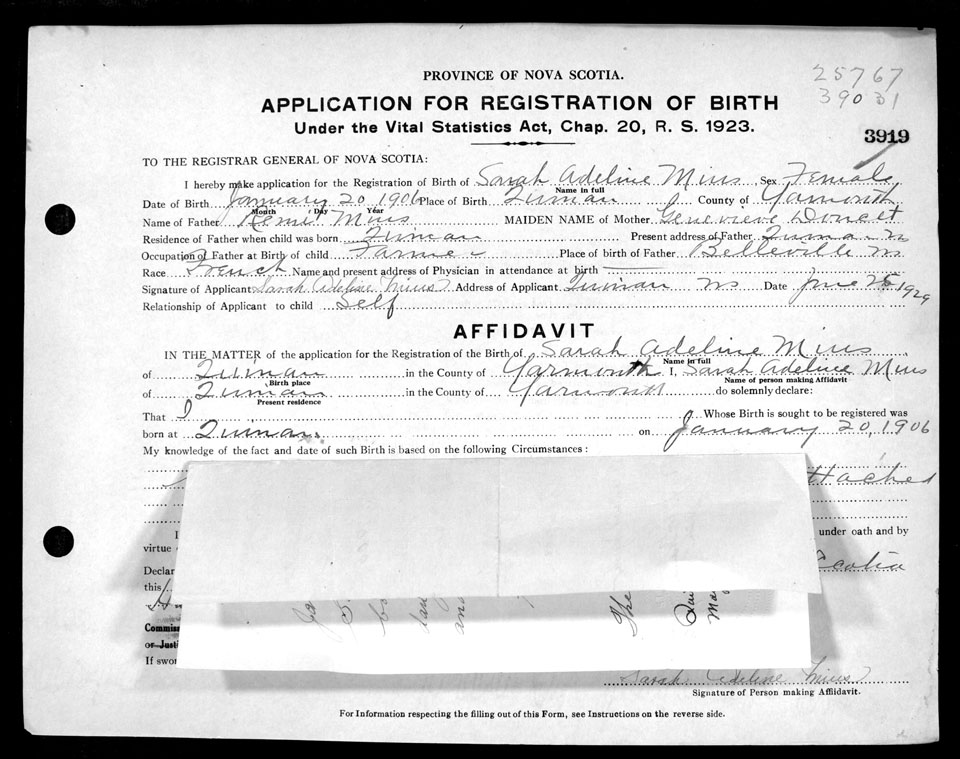 25767
39031
PROVINCE OF NOVA SCOTIA.
APPLICATION FOR REGISTRATION OF BIRTH
Under the Vital Statistics Act, Chap. 20, R. S. 1923.
3919
TO THE REGISTRAR GENERAL OF NOVA SCOTIA:
I hereby make application for the Registration of Birth of Sarah Adeline Mius Sex Female
Name in full
Date of Birth January 20 1906 Place of Birth Quinan County of Yarmouth
Month Day Year
Name of Father Remi Mius MAIDEN NAME of Mother Genevieve Doucet
Residence of Father when child was born Quinan Present address of Father Quinan NS
Occupation of Father at Birth of child Farmer Place of birth of Father Belleville NS
Race French Name and present address of Physician in attendance at birth
Signature of Applicant Sarah Adeline Mius Address of Applicant Quinan NS Date June 25 1929
Relationship of Applicant to child Self
AFFIDAVIT
IN THE MATTER of the application for the Registration of the Birth of Sarah Adeline Mius
Name in full
of Quinan in the County of Yarmouth I, Sarah Adeline Mius
Birth place Name of person making Affidavit
of Quinan in the County of Yarmouth do solemnly declare:
Present residence
That I Whose Birth is sought to be registered was
born at Quinan on January 20, 1906
My knowledge of the fact and date of such Birth is based on the following Circumstances:
ttached
I under oath and by
virtue
Declar Scotia
this
Commis
or Justi
If swor
The
and
Sarah Adeline Mius
Signature of Person making Affidavit.
For Information respecting the filling out of this Form, see Instructions on the reverse side.